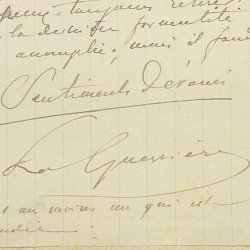 toujours
la dernière formalité
accomplie, mais il faud
Sentiments dévoués
La Guerrière
au moins un qui est